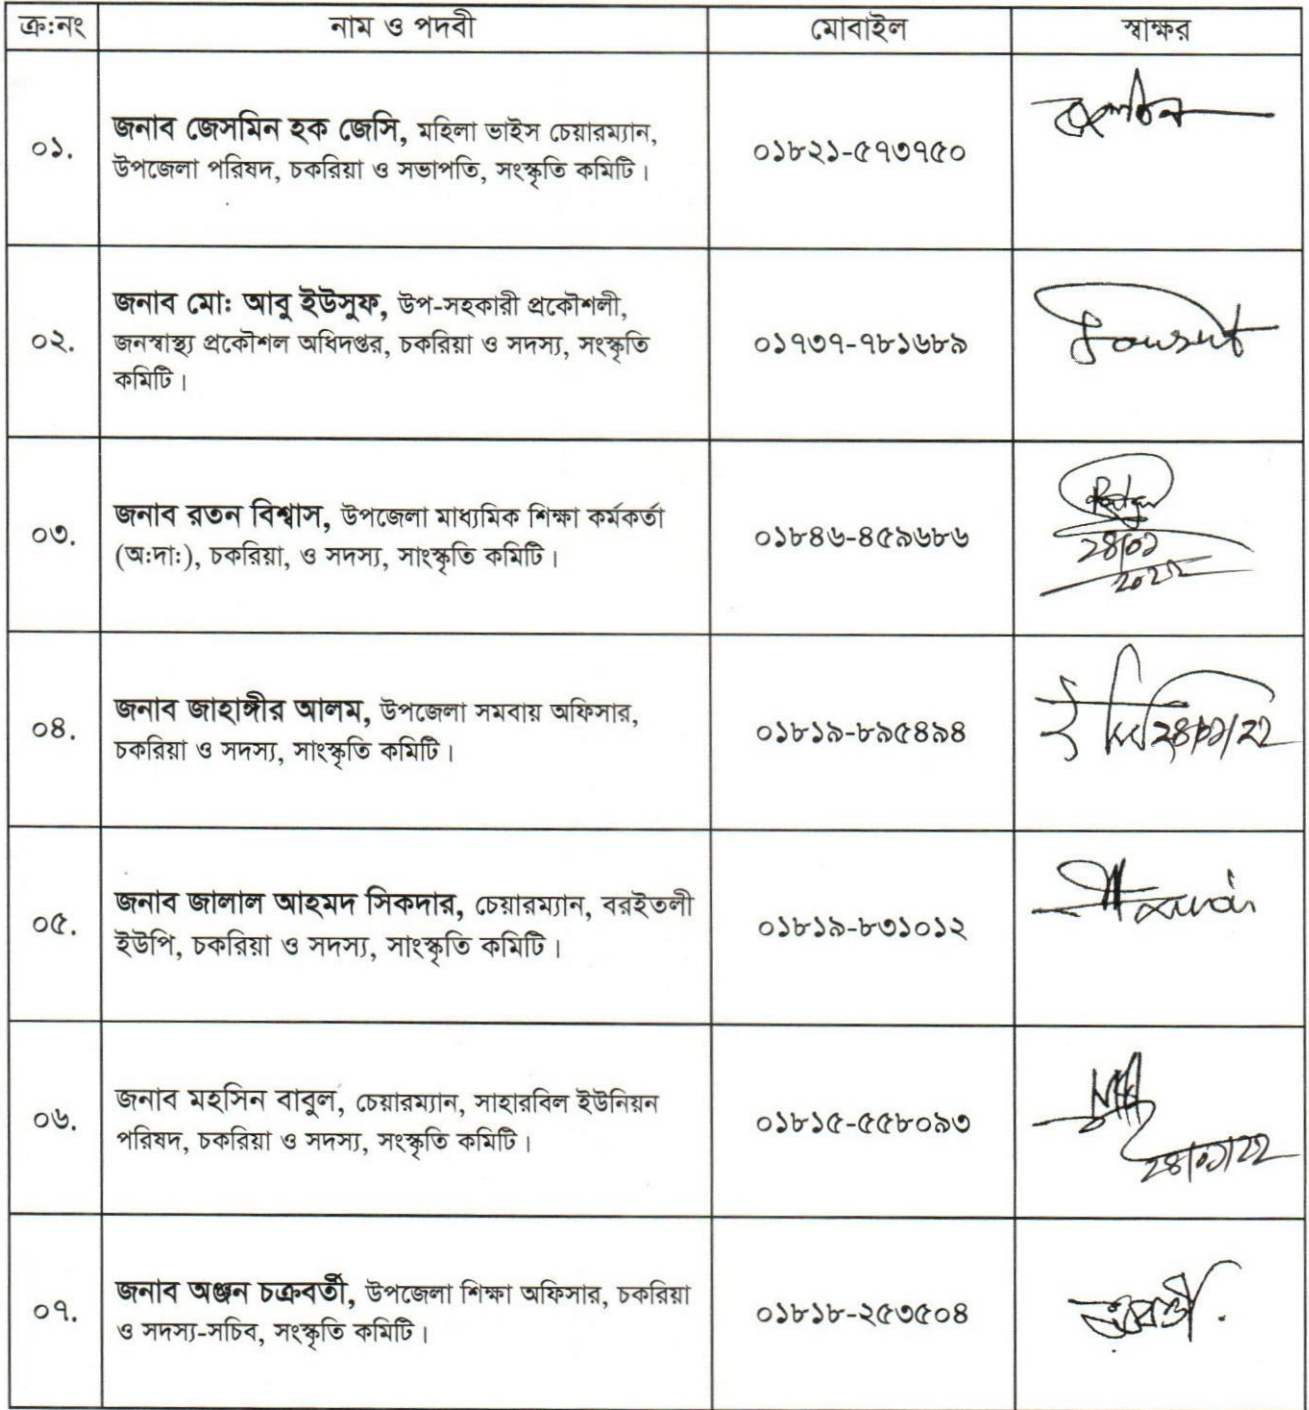 ক্র:নং নাম ও পদবী মোবাইল স্বাক্ষর
০১. জনাব জেসমিন হক জেসি, মহিলা ভাইস চেয়ারম্যান,
উপজেলা পরিষদ, চকরিয়া ও সভাপতি, সংস্কৃতি কমিটি। ০১৮২১-৫৭৩৭৫০
০২. জনাব মো: আবু ইউসুফ, উপ-সহকারী প্রকৌশলী,
জনস্বাস্থ্য প্রকৌশল অধিদপ্তর, চকরিয়া ও সদস্য, সংস্কৃতি
কমিটি। ০১৭৩৭-৭৮১৬৮৯
০৩. জনাব রতন বিশ্বাস, উপজেলা মাধ্যমিক শিক্ষা কর্মকর্তা
(অ:দা:), চকরিয়া, ও সদস্য, সাংস্কৃতি কমিটি। ০১৮৪৬-৪৫৯৬৮৬
০৪. জনাব জাহাঙ্গীর আলম, উপজেলা সমবায় অফিসার,
চকরিয়া ও সদস্য, সাংস্কৃতি কমিটি। ০১৮১৯-৮৯৫৪৯৪
০৫. জনাব জালাল আহমদ সিকদার, চেয়ারম্যান, বরইতলী
ইউপি, চকরিয়া ও সদস্য, সাংস্কৃতি কমিটি। ০১৮১৯-৮৩১০১২
০৬. জনাব মহসিন বাবুল, চেয়ারম্যান, সাহারবিল ইউনিয়ন
পরিষদ, চকরিয়া ও সদস্য, সংস্কৃতি কমিটি। ০১৮১৫-৫৫৮০৯৩
০৭. জনাব অঞ্জন চক্রবর্তী, উপজেলা শিক্ষা অফিসার, চকরিয়া
ও সদস্য-সচিব, সংস্কৃতি কমিটি। ০১৮১৮-২৫৩৫০৪